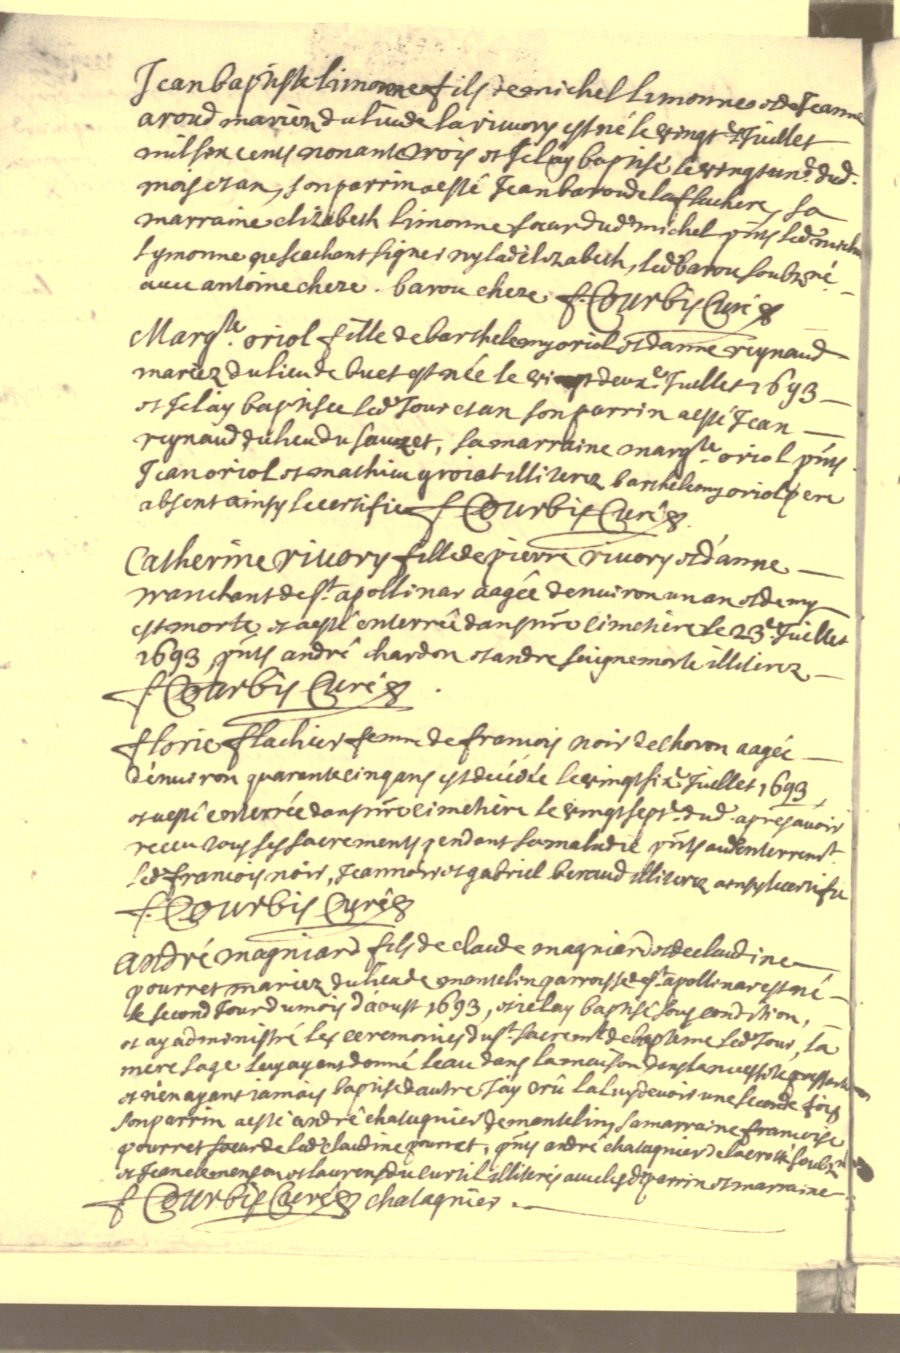 Jean baptiste limonne fils de michel limonne et de Jeanne
aroud mariez du lieu de la rivory est né le vingt.e Juillet
mil six cents nonante trois et Je lay baptisé le vingt un.e dud.
mois et an, son parrin a esté Jean barou de la flachere, sa
marraine elizabeth limonne soeur dud. michel p̃nts led. michel
Lymonne ne scachant signer ny lad. elizabeth, led. barou soubz né
avec antoine cheze . barou cheze f. Courbis Curé
Marg.te oriol fille de barthelemy oriol et d'anne reynaud
mariez du lieu de buet est née le vingt deux.e Juillet 1693
et Je lay baptisée led. Jour et an son parrin a esté Jean
reynaud du lieu du sauzet, sa marraine marg.te oriol p̃nts
Jean oriol et mathieu groiat illiterez barthelemy oriol pere
absent ainsy le certifie f Courbis Curé
Catherine rivory fille de pierre rivory et d'anne
marchant de s.t apollinar aagée d'environ un an et demy
est morte et a esté enterrée dans n̄re cimetiere le 23.e Juillet
1693, p̃nts andré chardon et andre seignemorte illiterez
f. Courbis Curé
florie flachier femme de francois noir de chovon aagée
d'environ quarante cinq ans est decedée le vingt six.e Juillet 1693
et a esté enterrée dans n̄re cimetiere le vingt sept.e dud. apres avoir
receu tous ses sacrements pendant sa maladie p̃nts aud. enterrem.t
led. francois noir, Jean noir et gabriel beraud illiterez ainsy le certifie
f. Courbis Curé
andré magniard fils de claude magniard et de claudine
pourret mariez du lieu de montelin parroisse de s.t apollinar est né
le second Jour du mois d'aoust 1693, et je lay baptisé sous condition,
et ay administré les ceremonies du s.t sacrem.t de bapteme led. Jour, la
mere sage luy ayant donné leau dans la maison dans la necessité
et n'en ayant jamais baptisé d'autre J'ay crû la luy devoir une seconde fois
son parrin a esté andré chatagnier de montelin, sa marraine francoise
pourret soeur de lad. claudine pourret, p̃nts andré chatagnier de la croix soubz né
et Jean clemenson et laurens du curtil illiterés avec lesd. parrin et marraine
f Courbis Curé chatagnier .